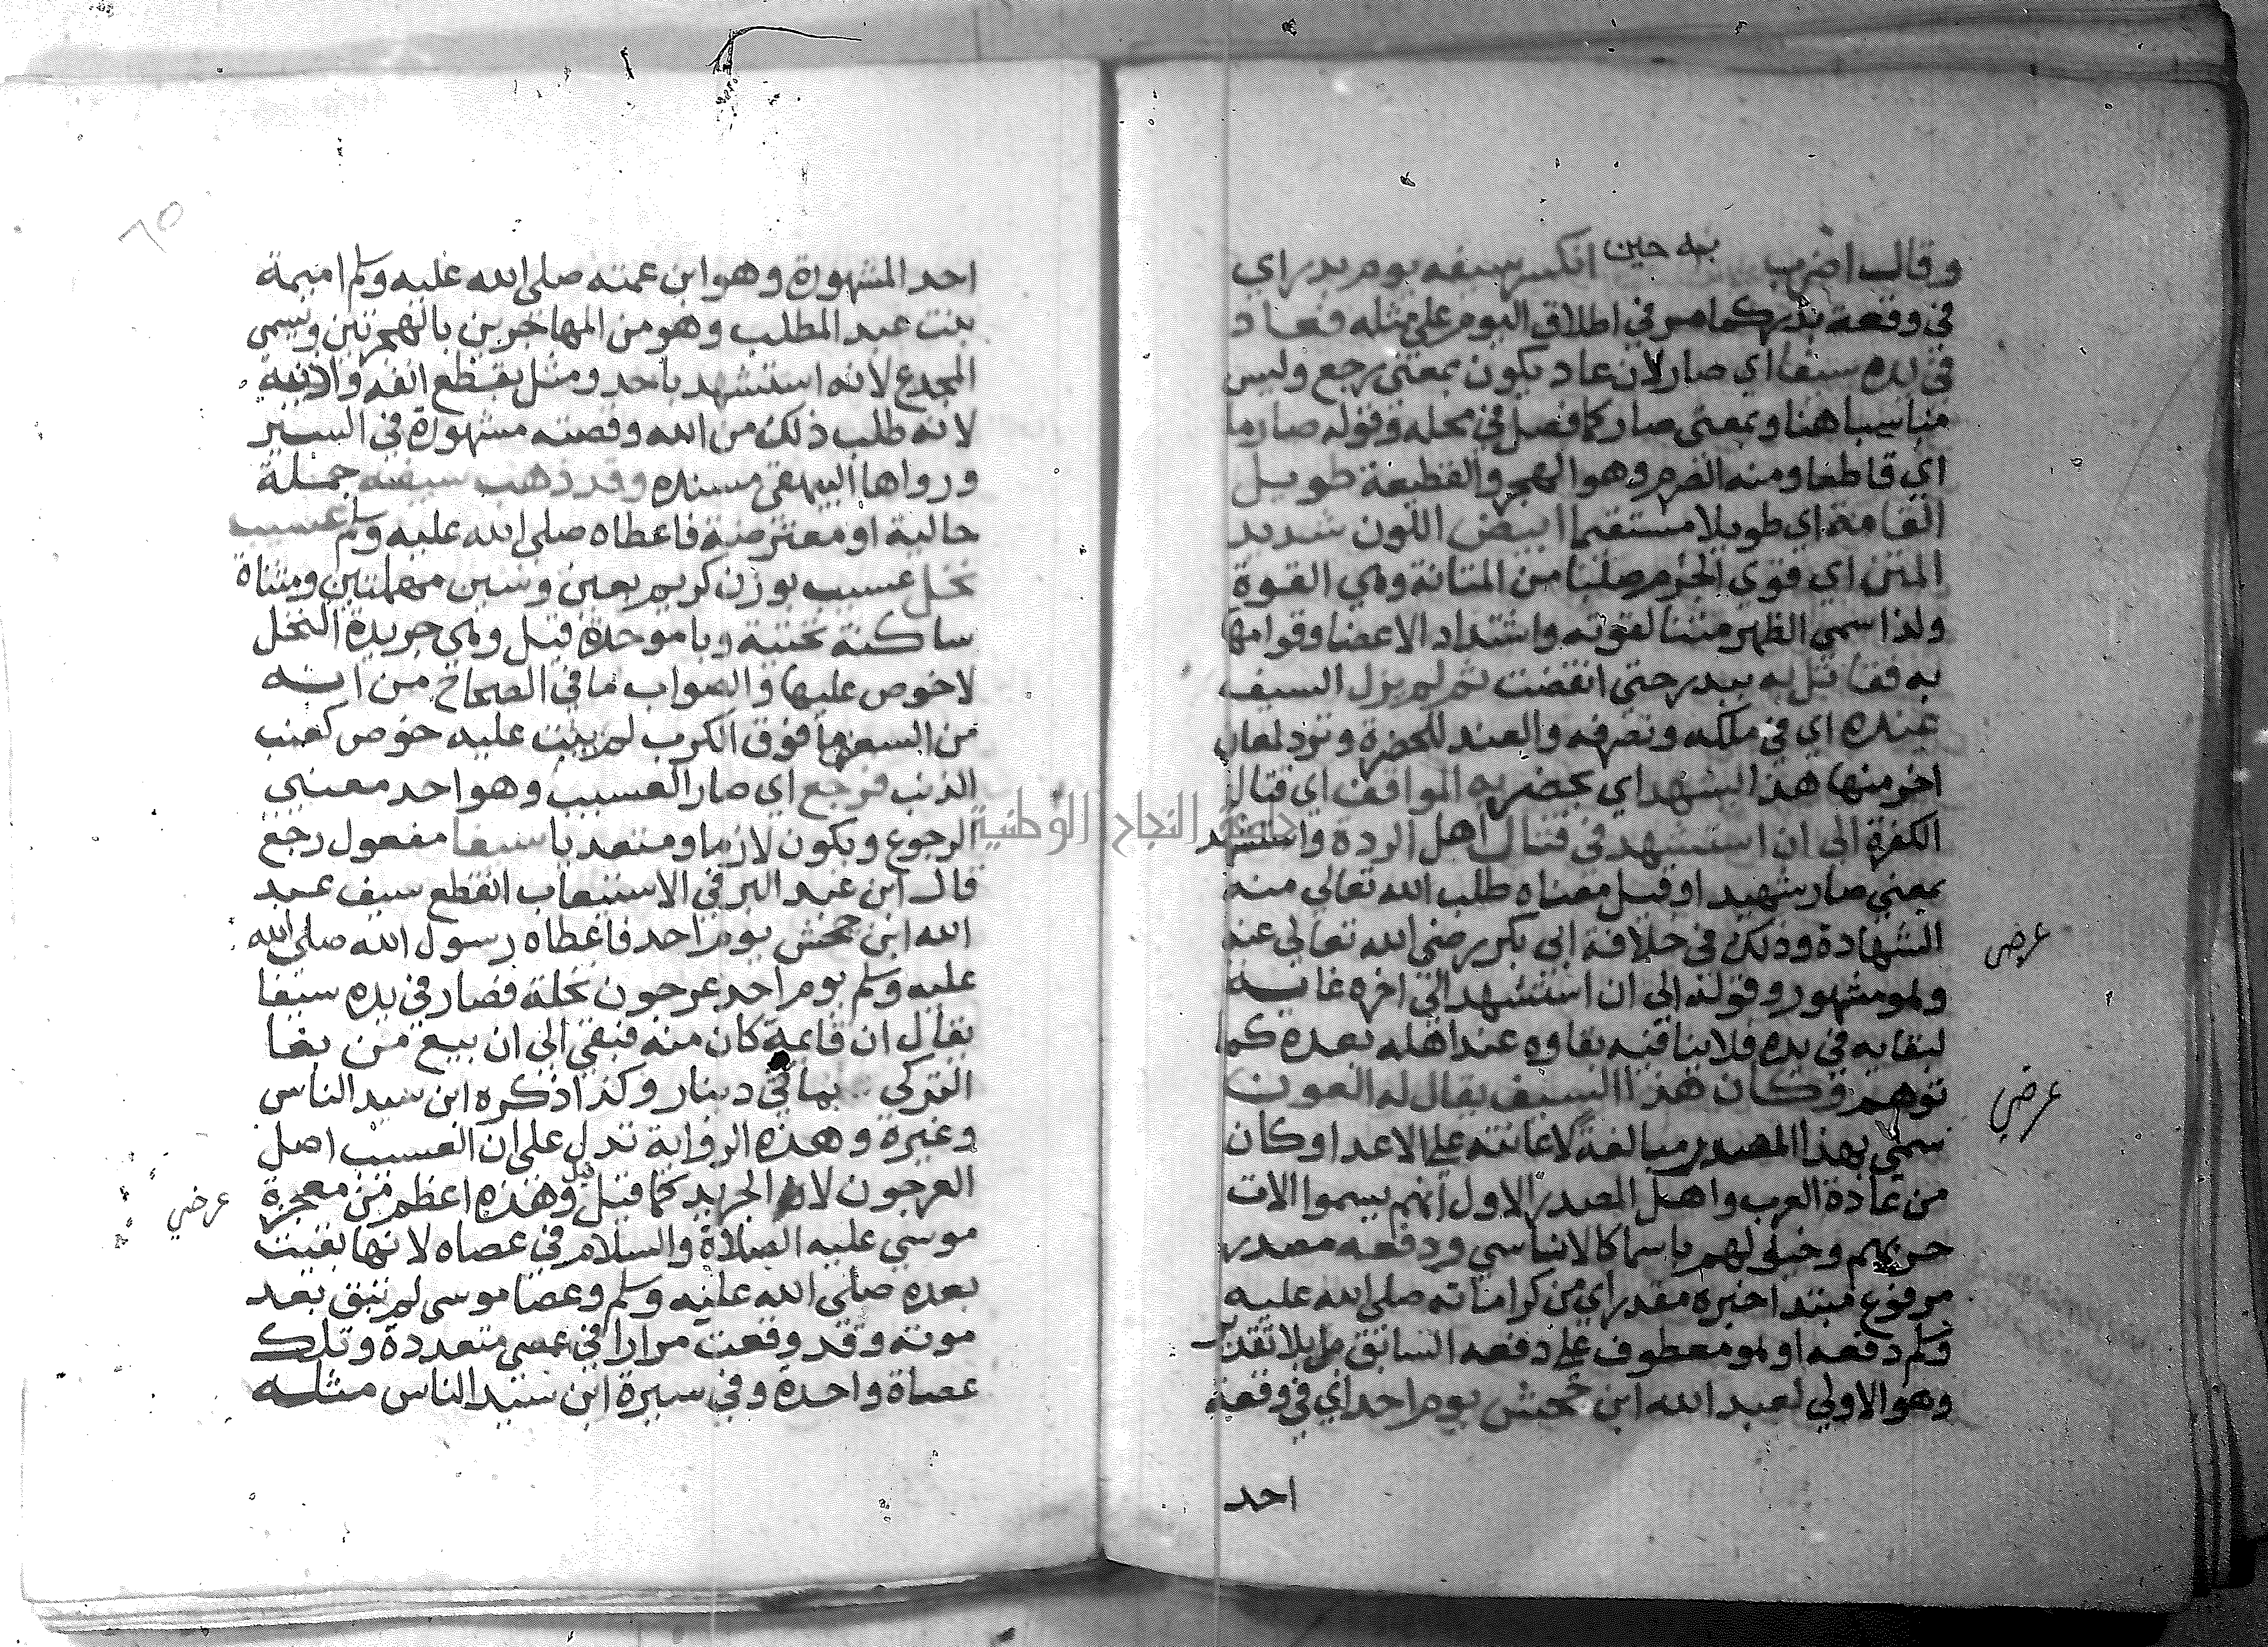 وقال اضرب به حين انكسر سيفه يوم بدر اي
في وقعة بدر كما مر في اطلاق اليوم على مثله فعاد
في يده سيفا اي صار لان عاد يكون بمعنى رجع وليس
مناسبا هنا وبمعنى صار كما فصل في محله وقوله صارما
اي قاطعا ومنه الصرم وهو الهجر والقطيعة طويل
القامة اي طويلا مستقيما ابيض اللون شديد
المتن اي قوي الجرم صلبا من المتانة وهي القوة
ولذا سمى الظهر متنا لقوته واشتداد الاعضا وقوامها
به فقاتل به ببدر حتى انقضت ثم لم يزل السيف
عنده اي في ملكه وتصرفه والعند للحضرة وترد لمعان
اخر منها هذا يشهد اي يحضر به المواقف اي قتال
الكفرة الى ان استشهد في قتال اهل الردة واستشهد
بمعنى صار شهيد او قيل معناه طلب الله تعالى منه
الشهادة وذلك في خلافة ابى بكر رضى الله تعالى عنه
وهو مشهور وقوله الى ان استشهد الى اخره غاية
لبقايه في يده فلا ينافيه بقاوه عند اهله بعده كما
توهم وكان هذا السيف يقال له العون
سمي بهذا المصدر مبالغة لاعانته على الاعدا وكان
من عادة العرب واهل الصدر الاول انهم يسموا الات
حربهم وخيولهم باسما كالاناسي ودفعه مصدر
مرفوع مبتدا خبره مقدر اي من كراماته صلى الله عليه
وسلم دفعه او هو معطوف على دفعه السابق بلا تقدير
وهو الاولى لعبد الله ابن جحش يوم احد اي في وقعة
احد
عرضي
عرضي
٦٥
احد المشهورة وهو ابن عمته صلى الله عليه وسلم اميمة
بنت عبد المطلب وهو من المهاجرين بالهجرتين ويسمى
المجدع لانه استشهد باحد ومثل بقطع انفه واذنيه
لانه طلب ذلك من الله وقصته مشهورة في السير
ورواها البيهقى مسنده وقد ذهب سيفه جملة
حالية او معترضة فاعطاه صلى الله عليه وسلم عسيب
نخل عسيب بوزن كريم بعين وسين مهملتين ومثناة
ساكنة تحتية وبا موحدة قيل وهى جريدة النخل
لا خوص عليها والصواب ما في الصحاح من انه
من السعف ما فوق الكرب لم ينبت عليه خوص كعنب
الذنب فرجع اي صار العسيب وهو احد معنيي
الرجوع ويكون لازما ومتعديا سيفا مفعول رجع
قال ابن عبد البر في الاستيعاب انقطع سيف عبد
الله ابن جحش يوم احد فاعطاه رسول الله صلى الله
عليه وسلم يوم احد عرجون نخلة فصار في يده سيفا
يقال ان قايمة كان منه فبقي الى ان بيع من بغا
التركي بمائتي دينار وكذا ذكره ابن سيد الناس
وغيره وهذه الرواية تدل على ان العسيب اصل
العرجون لا الجريد كما قيل وهذه اعظم من معجزة
موسى عليه الصلاة والسلام في عصاه لانها بقيت
بعده صلى الله عليه وسلم وعصا موسى لم تبق بعد
موته وقد وقعت مرارا في عصى متعددة وتلك
عصاة واحدة وفي سيرة ابن سيد الناس مثله
عرضي
جامعة النجاح الوطنية